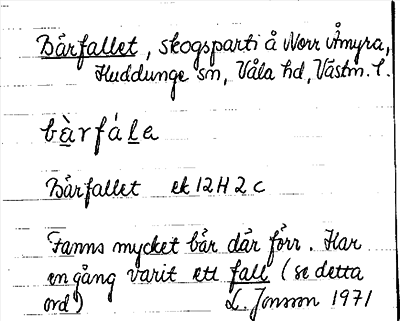 Bärfallet, skogsparti å Norr Åmyra,
Huddunge sn, Våla hd, Västm. l.
bà̱rfáḻa
Bärfallet ek 12H 2c
Fanns mycket bär där förr. Har
en gång varit ett fall (se detta
ord) L. Jonsson 1971